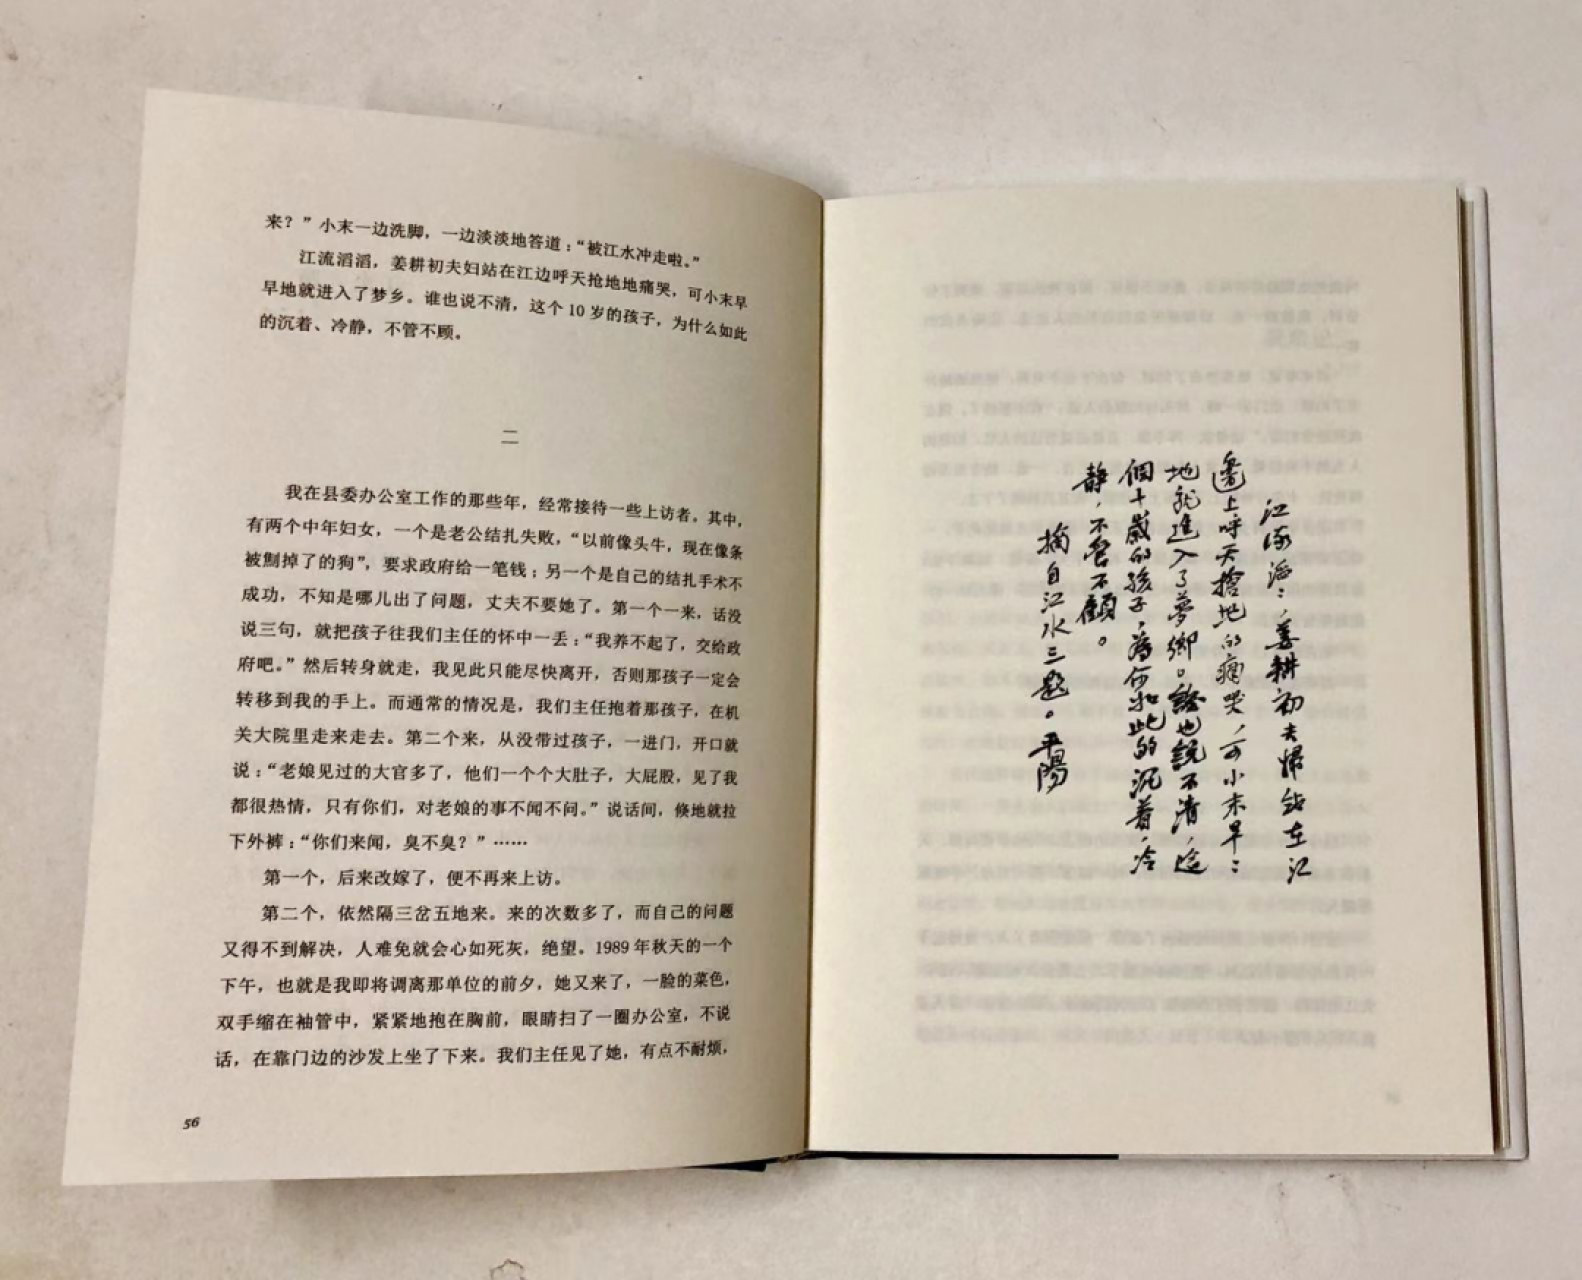 来？”小末一边洗脚，一边淡淡地答道：“被江水冲走啦。”
江流滔滔，姜耕初夫妇站在江边呼天抢地地痛哭，可小末早
早地就进入了梦乡。谁也说不清，这个 10 岁的孩子，为什么如此
的沉着、冷静，不管不顾。
二
我在县委办公室工作的那些年，经常接待一些上访者。其中，
有两个中年妇女，一个是老公结扎失败，“以前像头牛，现在像条
被劁掉了的狗”，要求政府给一笔钱；另一个是自己的结扎手术不
成功，不知是哪儿出了问题，丈夫不要她了。第一个一来，话没
说三句，就把孩子往我们主任的怀中一丢：“我养不起了，交给政
府吧。”然后转身就走，我见此只能尽快离开，否则那孩子一定会
转移到我的手上。而通常的情况是，我们主任抱着那孩子，在机
关大院里走来走去。第二个来，从没带过孩子，一进门，开口就
说：“老娘见过的大官多了，他们一个个大肚子，大屁股，见了我
都很热情，只有你们，对老娘的事不闻不问。”说话间，倏地就拉
下外裤：“你们来闻，臭不臭？”……
第一个，后来改嫁了，便不再来上访。
第二个，依然隔三岔五地来。来的次数多了，而自己的问题
又得不到解决，人难免就会心如死灰，绝望。1989 年秋天的一个
下午，也就是我即将调离那单位的前夕，她又来了，一脸的菜色，
双手缩在袖管中，紧紧地抱在胸前，眼睛扫了一圈办公室，不说
话，在靠门边的沙发上坐了下来。我们主任见了她，有点不耐烦，
56
江流滔：，姜耕初夫婦站在江
邊上呼天搶地的痛哭，可小末早：
地就進入了夢鄉。誰也説不清，這
個十歲的孩子，為何如此的沉着，冷
静，不管不顧。
摘自江水三题。平陽